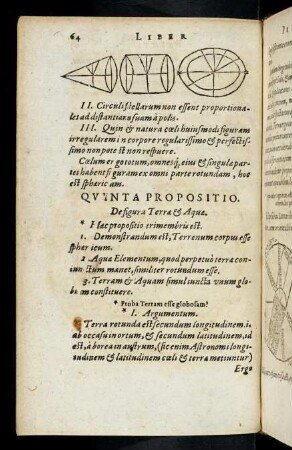 64 LIBER
II. Circuli stellarum non essent proportiona-
les ad distantiam suam à polis.
III. Quin & natura cœli huiusmodi figuram
irregularem in corpore regularissimo & perfectis-
simo non potest non respuere.
Cœlum ergo totum, omnesq; eius & singulæ par-
tes habent figuram ex omni parte rotundam, hoc
est sphæricam.
QVINTA PROPOSITIO.
De figura Terræ & Aquæ.
* Hæc propositio trimembris est.
1. Demonstrandum est, Terrenum corpus esse
sphæricum.
2 Aquæ Elementum, quod perpetuò terræ con-
iunctum manet, similiter rotundum esse.
3. Terram & Aquam simul iuncta vnum glo-
bum constituere.
* Proba Terram esse globosam?
* I. Argumentum.
Terra rotunda est secundum longitudinem. i.
ab occasu in ortum, & secundum latitudinem, id
est, à borea in austrum, (sic enim Astronomi longi-
tudinem & latitudinem cœli & terræ metiuntur)
Ergo